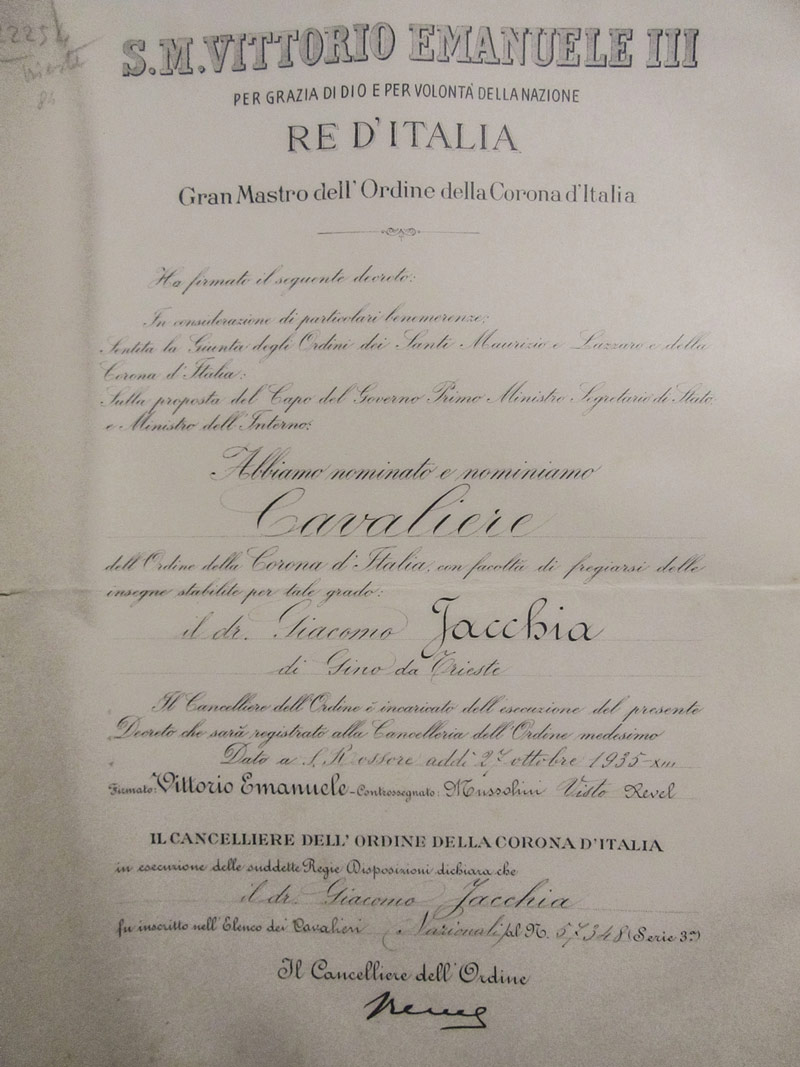 2225
Trieste
S.M. VITTORIO EMANUELE III
PER GRAZIA DI DIO E PER VOLONTÀ DELLA NAZIONE
RE D'ITALIA
Gran Mastro dell'Ordine della Corona d'Italia
Ha firmato il seguente decreto:
In considerazione di particolari benemerenze;
Sentita la Giunta degli Ordini dei Santi Maurizio e Lazzaro e della
Corona d'Italia;
Sulla proposta del Capo del Governo Primo Ministro Segretario di Stato
e Ministro dell'Interno;
Abbiamo nominato e nominiamo
Cavaliere
dell'Ordine della Corona d'Italia, con facoltà di fregiarsi delle
insegne stabilite per tale grado:
il dr. Giacomo Jacchia
di Gino da Trieste
Il Cancelliere dell'Ordine è incaricato dell'esecuzione del presente
Decreto che sarà registrato alla Cancelleria dell'Ordine medesimo
Dato a S. Rossore addì 27 ottobre 1935-XIII
Firmato: Vittorio Emanuele - Controssegnato: Mussolini Visto Revel
IL CANCELLIERE DELL'ORDINE DELLA CORONA D'ITALIA
in esecuzione delle suddette Regie Disposizioni dichiara che
il dr. Giacomo Jacchia
fu inscritto nell'Elenco dei Cavalieri Nazionali al N. 57348 (Serie 3ª)
Il Cancelliere dell'Ordine